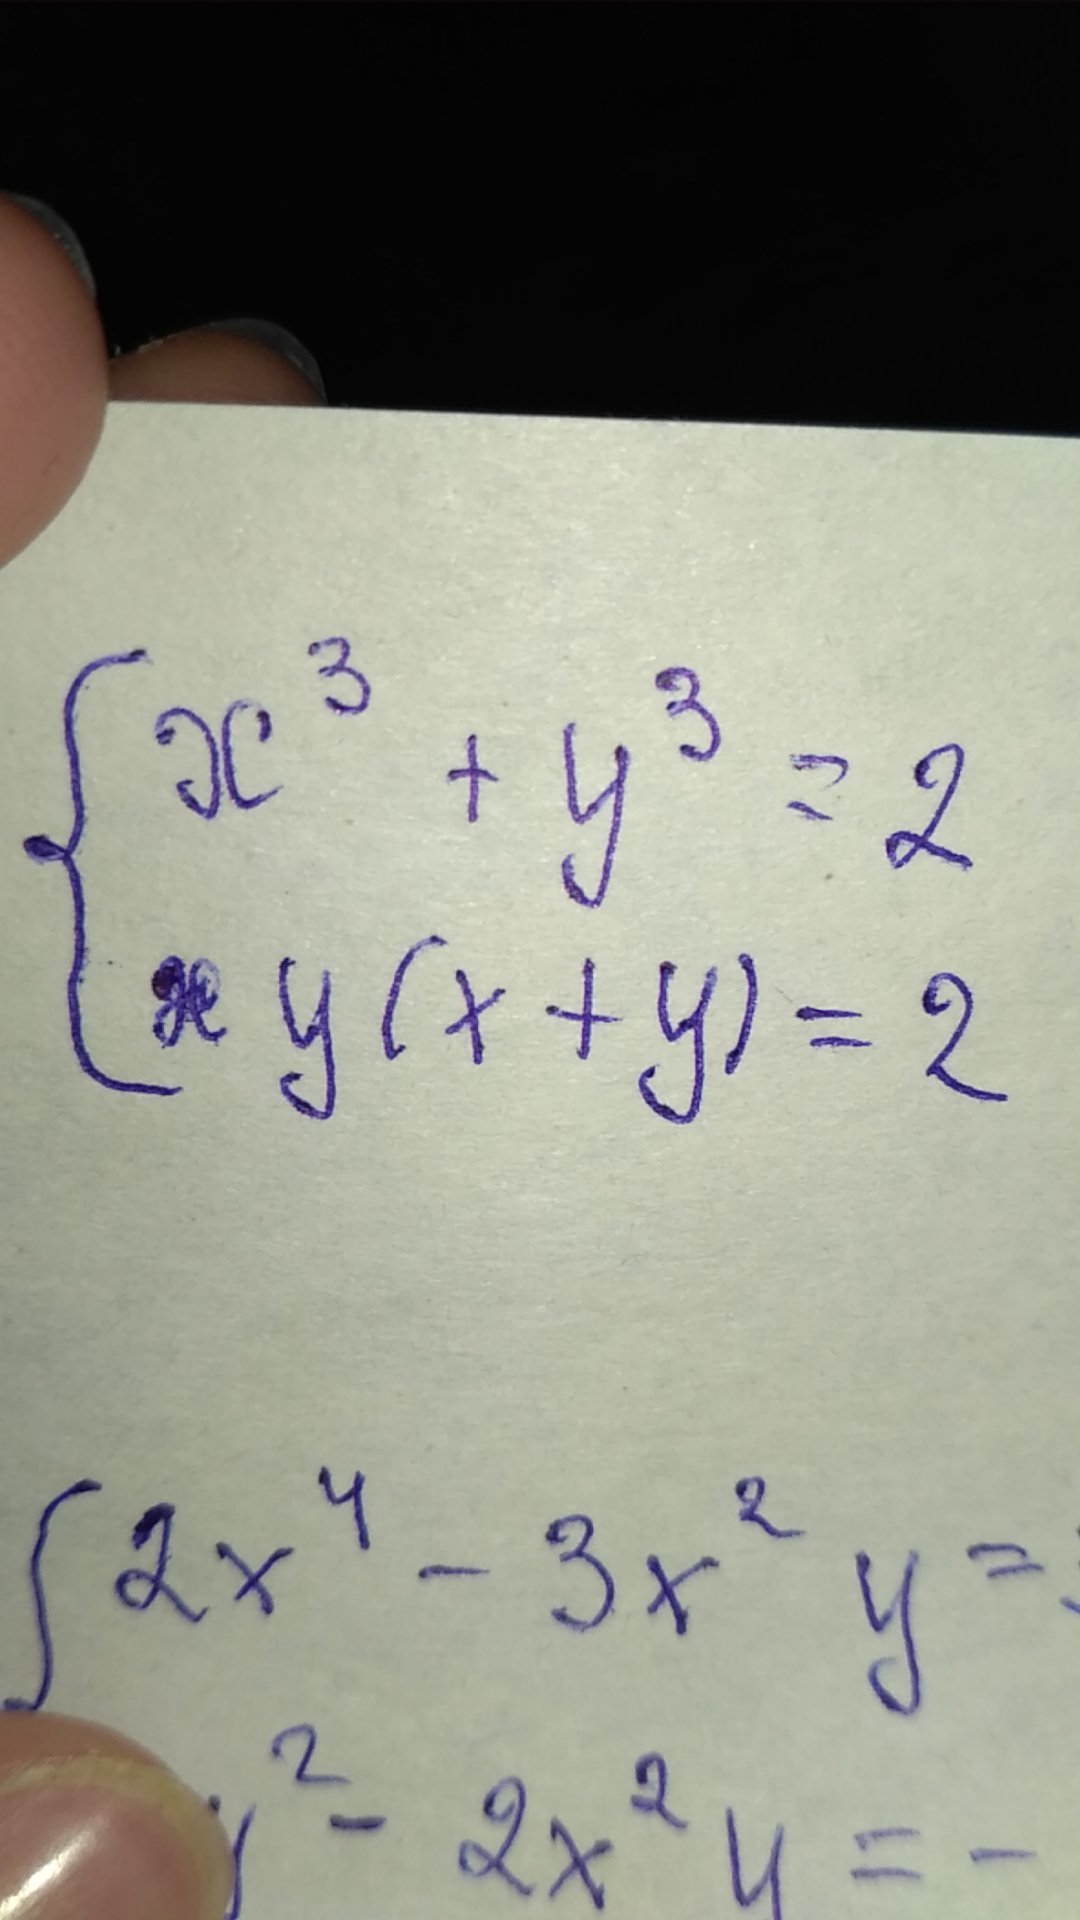 x³ + y³ = 2
xy(x + y) = 2
2x⁴ - 3x²y =
² - 2x²y = -